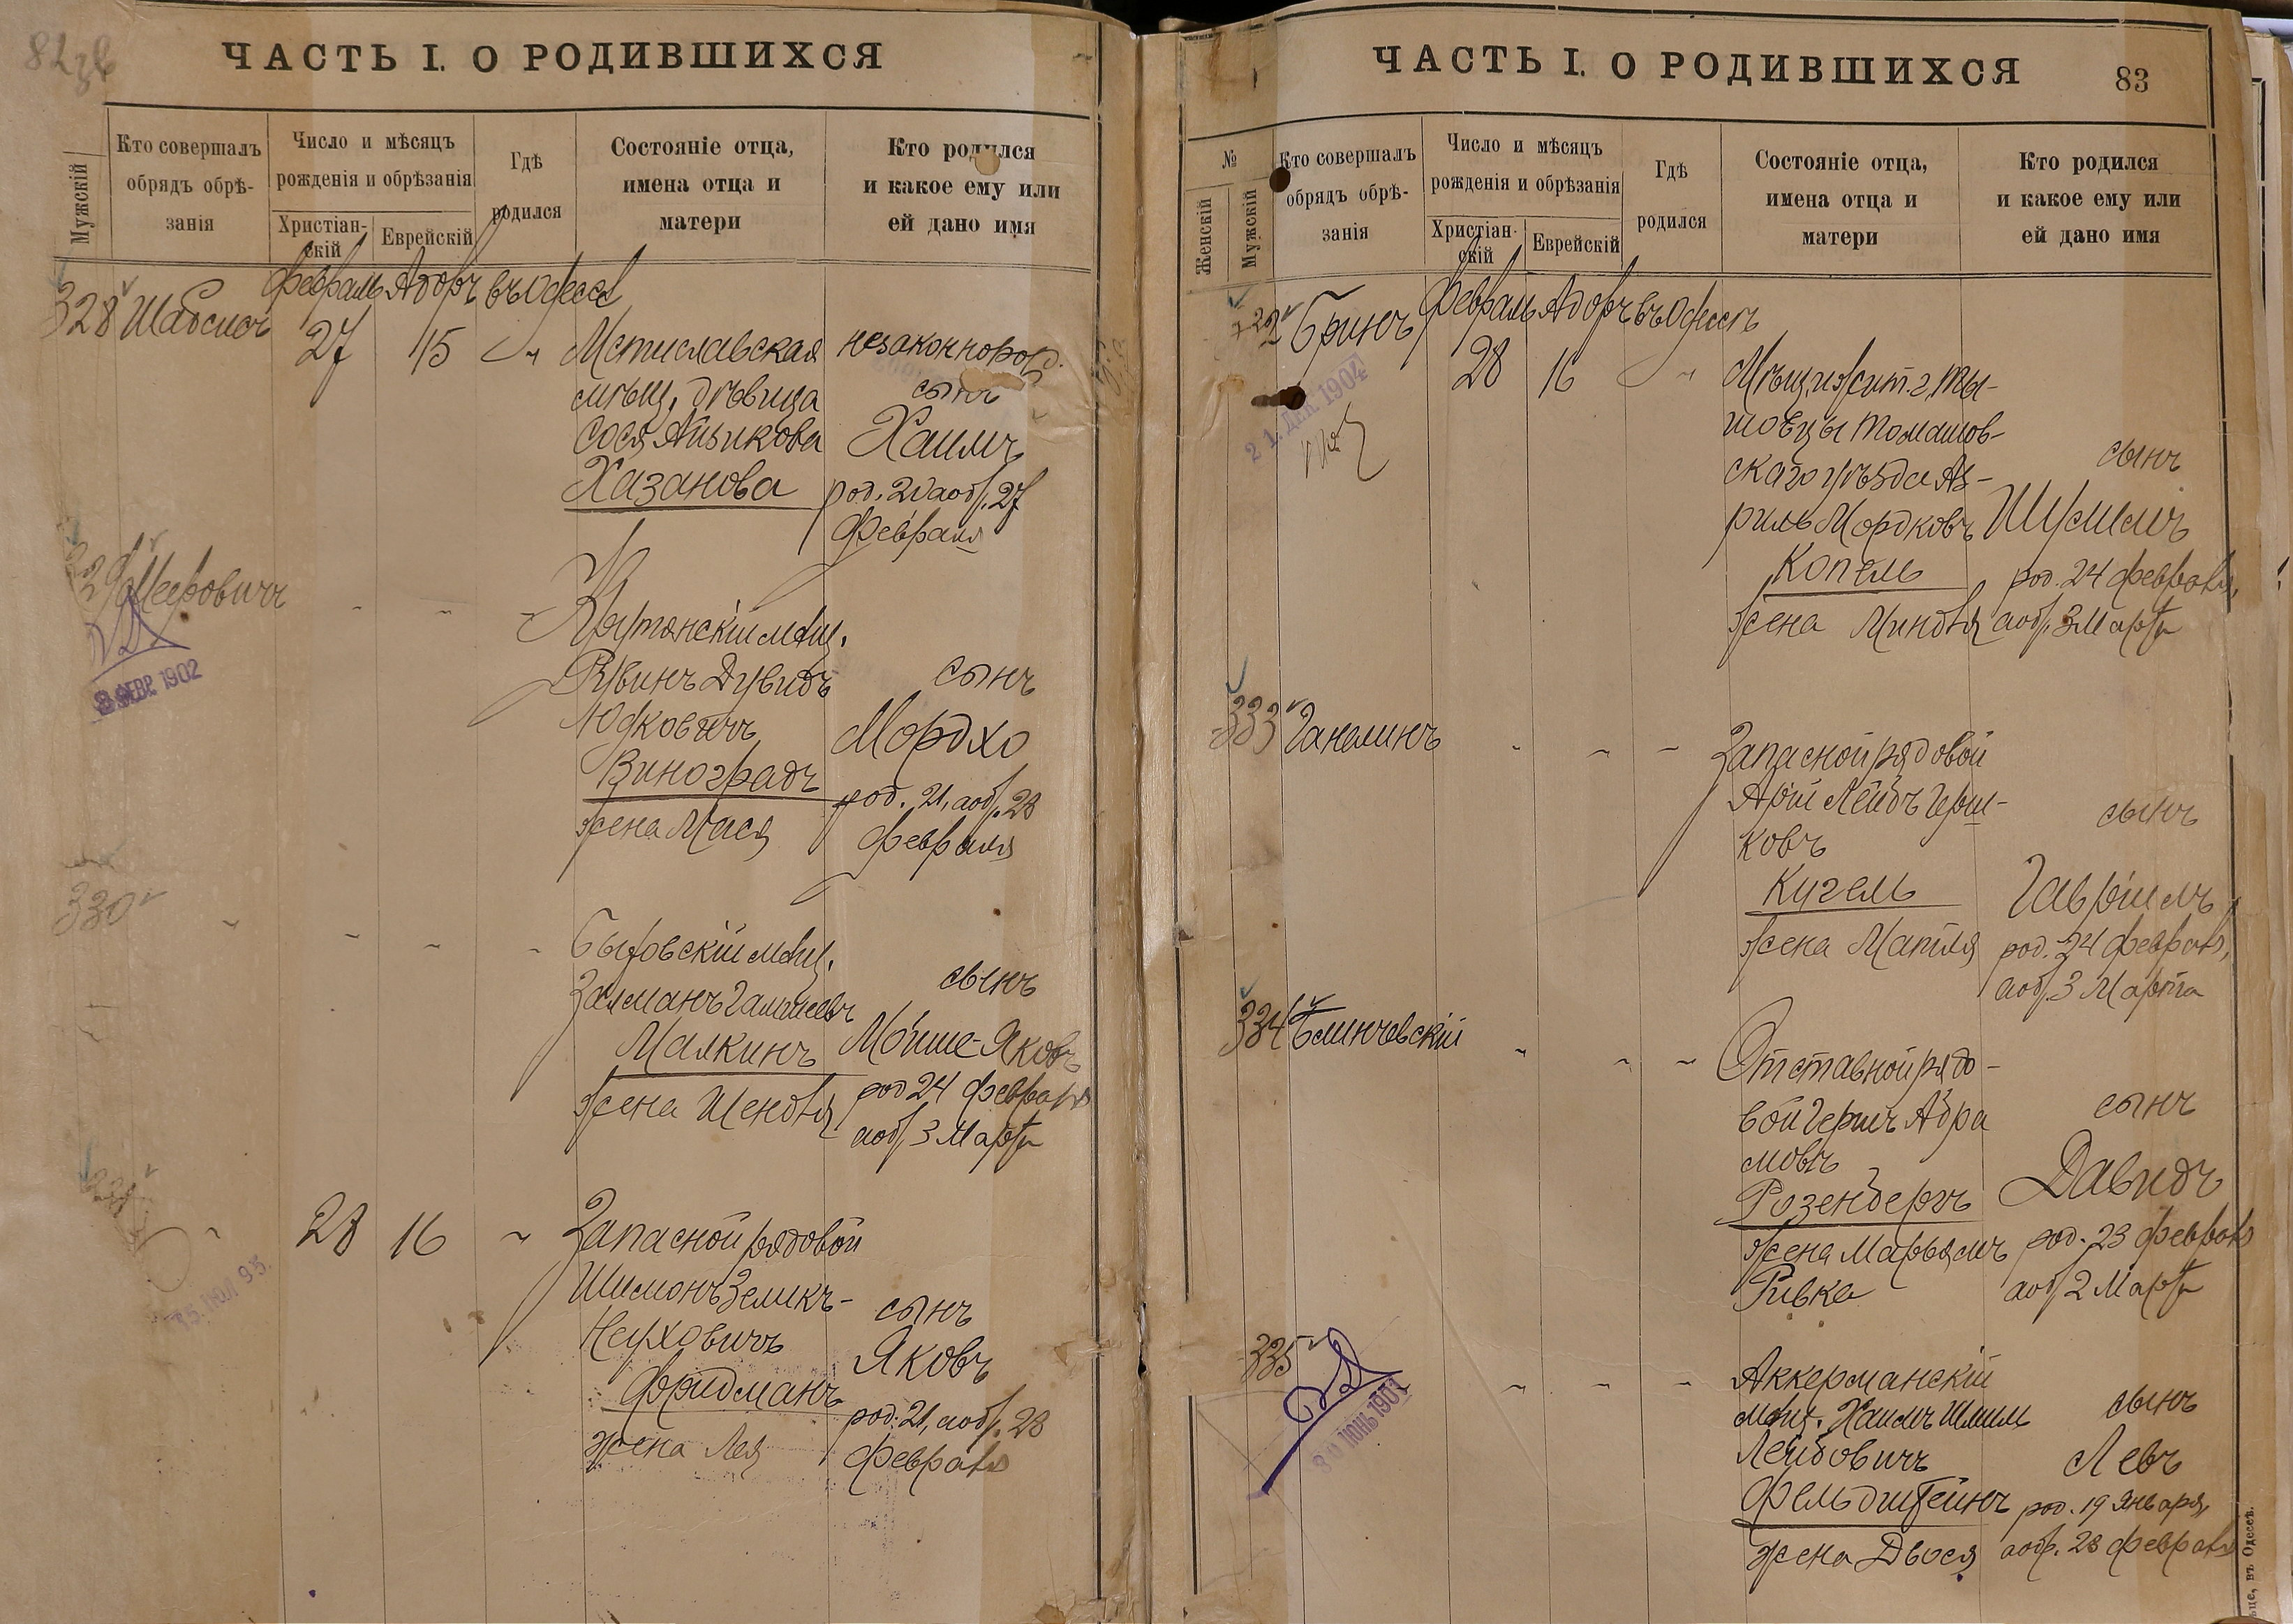 82 зв
ЧАСТЬ I. О РОДИВШИХСЯ
Мужскій
Кто совершалъ
обрядъ обрѣ-
занія
Число и мѣсяцъ
рожденія и обрѣзанія
Христіан-
скій
Еврейскій
Гдѣ
родился
Состояніе отца,
имена отца и
матери
Кто родился
и какое ему или
ей дано имя
328 Шабсисъ
Февраль Адаръ въ Одессѣ
27 15
Мстиславская
мѣщ. дѣвица
Сося Айзикова
Хазанова
незаконнорожд.
сынъ
Хаимъ
род. 20 а обр. 27
Февраля
329 Мееровичъ
мѣщ.
Рувинъ Дувидъ
Юдковичъ
Виноградъ
жена Мася
сынъ
Мордхо
род. 21, а обр. 28
Февраля
8 ФЕВР. 1902
330
Быховскій мѣщ.
Залманъ
Малкинъ
жена Шендля
сынъ
Мойше-Яковъ
род 24 февраля
а обр. 3 Марта
331
28 16
Запасной рядовой
Шимонъ Зеликъ-
Нуховичъ
Фридманъ
жена Лея
сынъ
Яковъ
род. 21, а обр. 28
Февраля
ЧАСТЬ I. О РОДИВШИХСЯ
83
№
Женскій
Мужскій
Кто совершалъ
обрядъ обрѣ-
занія
Число и мѣсяцъ
рожденія и обрѣзанія
Христіан-
скій
Еврейскій
Гдѣ
родился
Состояніе отца,
имена отца и
матери
Кто родился
и какое ему или
ей дано имя
Гринъ
Февраль Адаръ въ Одессѣ
28 16
21 ДЕК. 1904
Ты-
шовцы Томашов-
скаго уѣзда Аз-
риль Мордковъ
Копель
жена Миндля
сынъ
Шулимъ
род. 24 февраля,
а обр. 3 Марта
333 Ганелинъ
Запасной рядовой
Арій Лейбъ Герш-
ковъ
Кигель
жена Матля
сынъ
Гавріилъ
род. 24 февраля,
а обр. 3 Марта
334 Блинчевскій
Отставной рядо-
вой Гершъ Абра
мовъ
Розенбергъ
жена Марьямъ
Ривка
сынъ
Давидъ
род. 23 февраля
а обр. 2 Марта
335
Аккерманскій
мѣщ. Хаимъ Шлима
Лейбовичъ
Фельдштейнъ
жена Двося
сынъ
Левъ
род. 19 Января,
а обр. 28 февраля
въ Одессѣ.